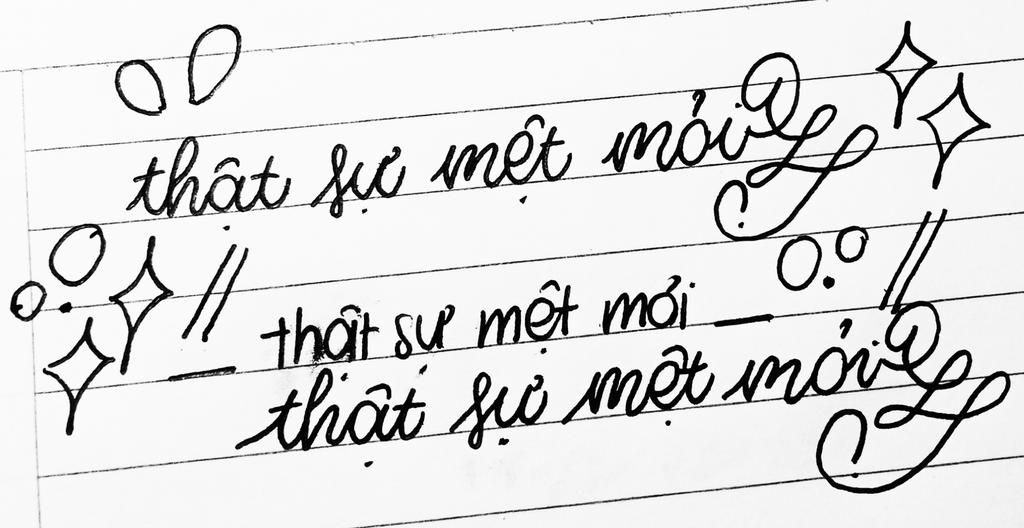 thật sự mệt mỏi
_ thật sự mệt mỏi _
thật sự mệt mỏi